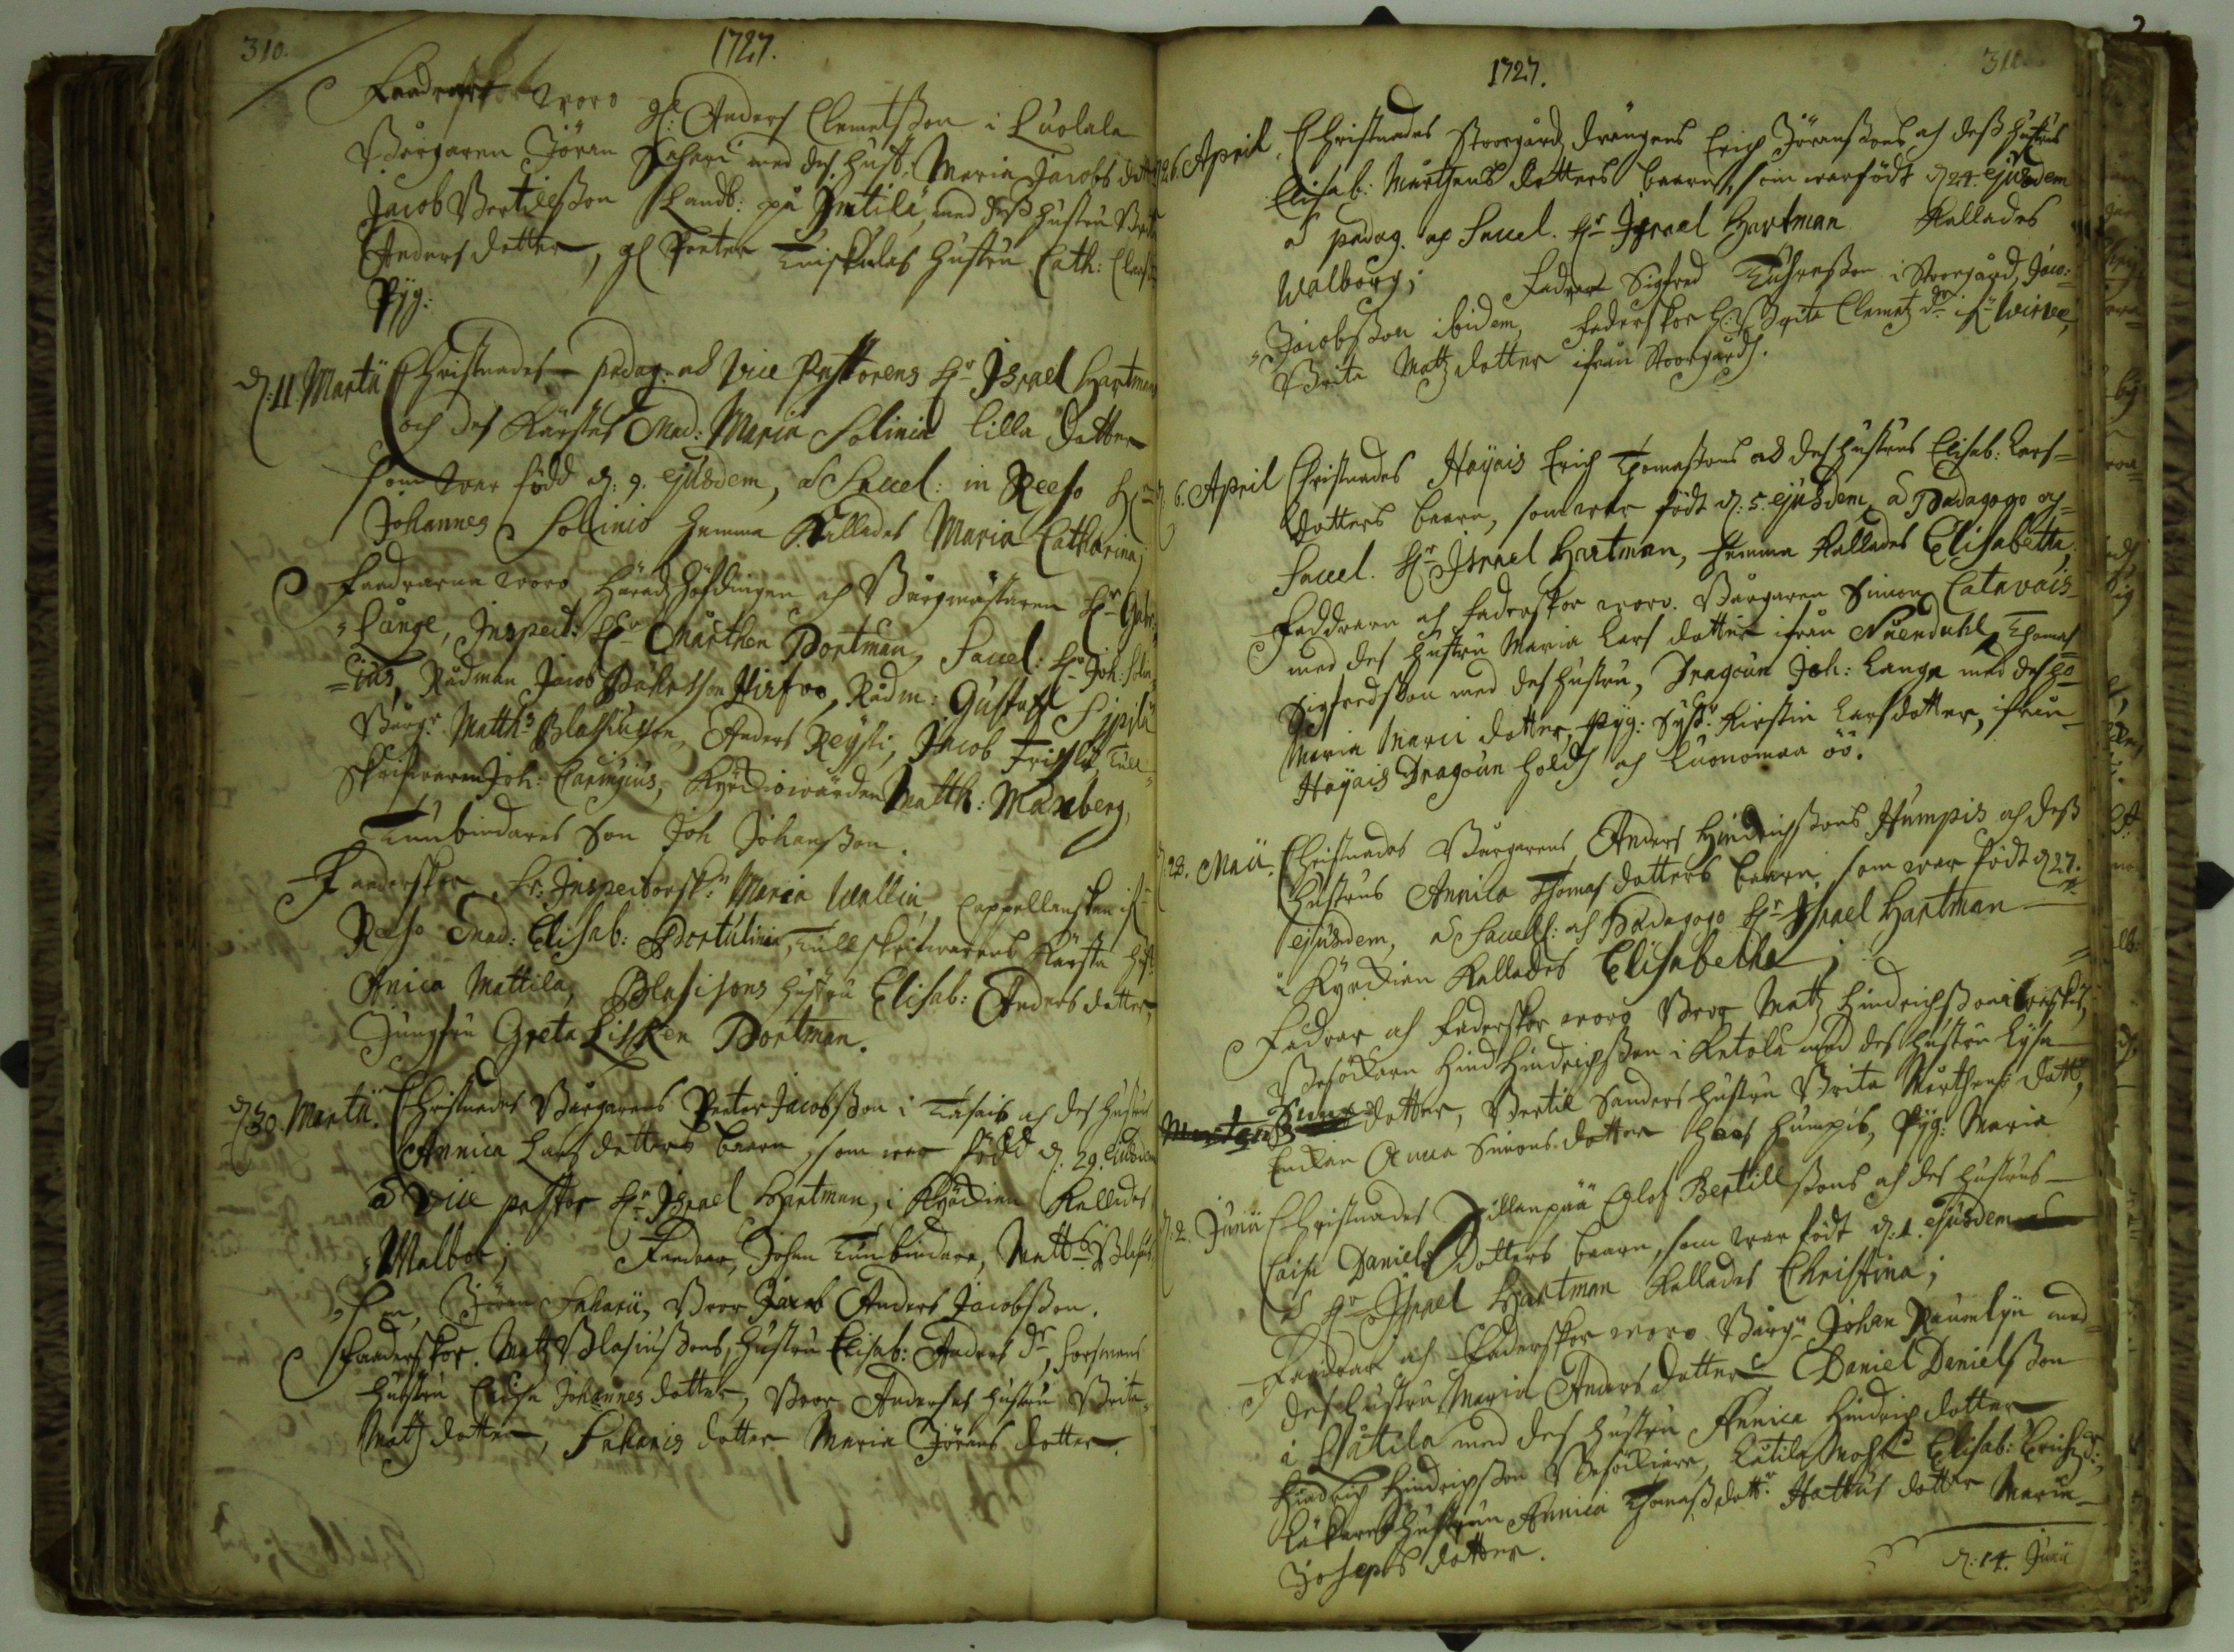 310.
1727.
Faddrar woro gl: Anders Clemetsson i Luolala
Börgaren Jöran Sahari med des hust: Maria Jacobs dott
Jacob Bertilsson Landb: på Pintilä, med dess hustru Brita
Anders dotter, gl Peeter Tuiskulas hustru Cath: Claes
Pyg:
d: 11 Martii Christnades pædag: och Vice Pastorens Hr Israel Hartmans
och des Kärestes Mad: Maria Solinia lilla dotter
som war född d: 9. ejusdem, a Sacel: in Reeso Hr
Johannes Solinio hemma Kallades Maria Catharina;
Faddrarna woro Häradzhöfdingen och Borgmästaren Hr Gabr:
Lange, Inspect: Hr Mårthen Portman, Sacel: Hr Joh: Solin
ius, Rådman Jacob Hirfoo, Rådm: Gustaff Sipilä
Börg: Matths Blasiusson, Anders Reysti, Jacob Tull
skrifwaren Joh: Caringius, Kyrckiowärden Matth: Manberg,
Tunbindares Son Joh Johansson.
Faderskor, Fr: Inspectorsk: Maria Wallin, Cappellanskan if
Reso Mad: Elisab: Portulinia, Tullskrifwarens Kärsta hust
Anica Mattila, Blasisons hustru Elisab: Anders dotter,
Jungfru Greta Lisken Portman.
d 30 Martii. Christnades Börgarens Peeter Jacobsson i Tasais och des hustrus
Annica Larsdotters baarn, som war född d. 29. Eiusdem
a Vice pastor Hr Israel Hartman, i Kyrckian Kallades
Walbor; Faddrar, Johan Tunbindare, Matts Blasius
son, Jöran Sakarii, Bror Jacob Anders Jacobsson.
Faderskor. Matz Blasiussons, hustru Elisab: Anders dr, Forsmans
hustru Caisa Johannes dotter, Bror Anderses hustru Brita
Matz dotter, Sakaris dotter Maria Jörans dotter.
1727.
310
26. April. Christnades Storgårdz drängens Erich Jöranssons och dess hustrus
Elisab: Mårthens dotters baarn, som war födt d 24. ejusdem
a pædag. och Sacel. Hr Israel Hartman Kallades
Walborg; Fadrar Sigfred i Storgård, Jacob
Jacobsson ibidem, Faderskor H: Brita Clemetz dr if: Wirvee,
Brita Matz dotter ifrån Storgårdh.
d. 6. April Christnades Hayais Erich Thomassons och des hustrus Elisab: Lars
dotters baarn, som war födt d. 5. ejusdem, a Pædagogo och
Sacel. Hr Israel Hartman, hemma Kallades Elisabetta,
Faddrarn och faderskor woro. Börgaren Simon Catavais
med des hustru Maria Lars dotter ifrån Nåendahl, Thomas
Sigfredsson med des hustru, Dragoun Joh: Lange med des ho
Maria Marci dotter, Pyg: Syst: Kirstin Larsdotter, ifrån
Hayais Dragoun holdh och Luonomaa öö.
d. 28. Maii. Christnades Börgarens Anders Hindrichssons Humpis och dess
hustrus Annica Thomas dotters baarn, som war födt d 27.
ejusdem, a Sacell: och Pædagogo Hr Israel Hartman
i Kyrckian Kallades Elisabetha;
Fadrar och faderskor woro Bror Matz Hindrichsson
Besöckarn Hind Hindrichsson i Ketola med des hustru Lysa
dotter, Bertil Sanders hustru Brita Mårthens dott,
Enckan Anna Simons dotter hoos Humpis, Pyg: Maria
d. 2. Junii Christnades Pillanpää Olof Bertillssons och des hustrus
Caisa Daniels dotters baarn, som war födt d. 1. ejusdem
a Hr Israel Hartman Kallades Christina;
Fadrar och Faderskor woro Börg: Johan Raumlin med
des hustru Maria Anders dotter Daniel Danielsson
i Låttila med des hustru Annica Hindrich dotter
Hindrich Hindrichsson Besöckiare, Elisab: Erichz d:,
hustrun Annica Thomassdott: Hattus dotter Maria
Josephs dotter.
d: 14. Junii